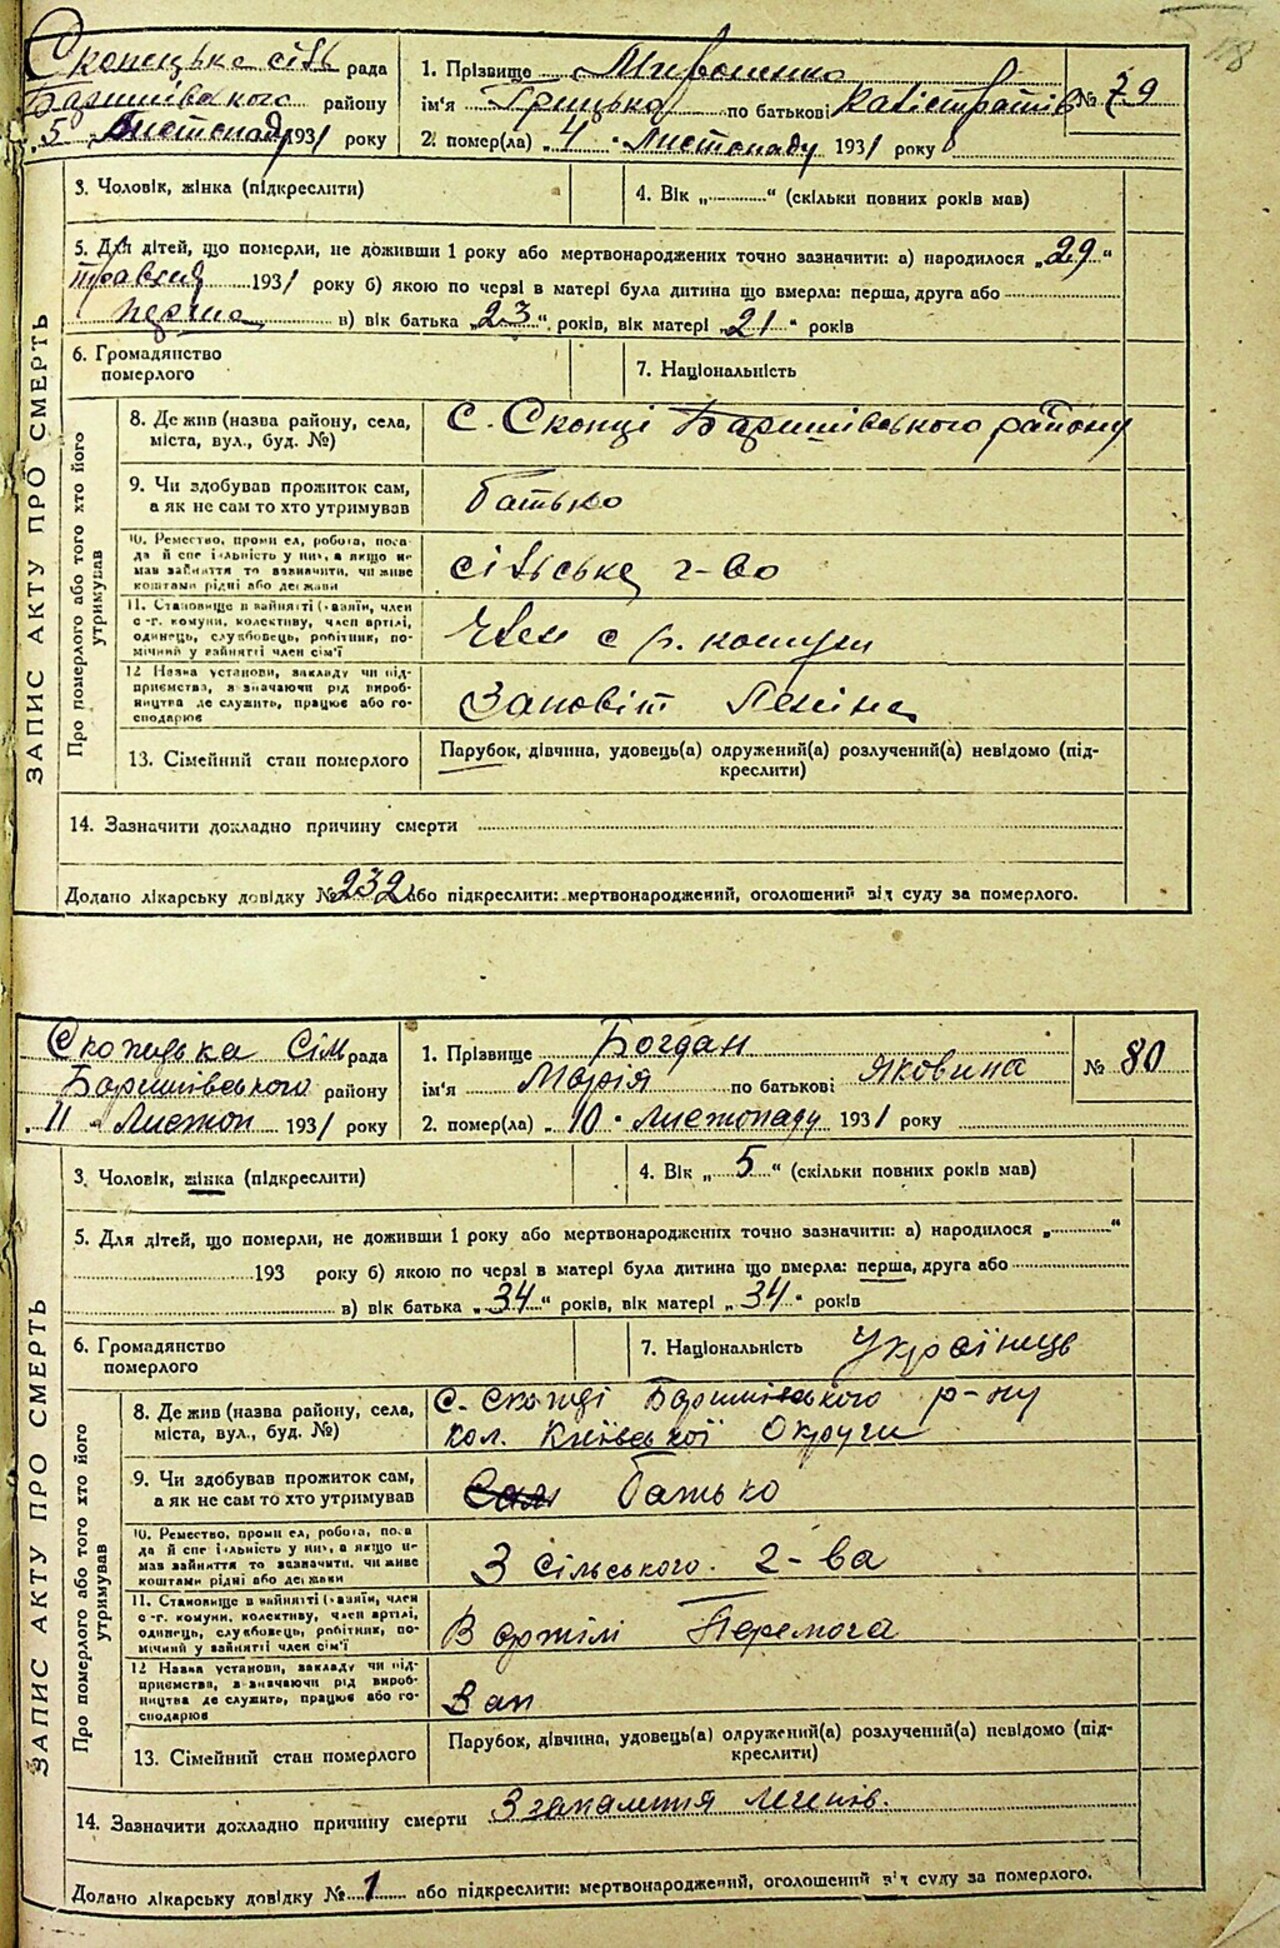 118
Скопецька сіль рада
Баришівського району
„5„ Листопаду 1931 року
1. Прізвище Мивошенко
ім'я Грицько по батькові Калістратів
№ 79
2. помер(ла) „4„ Листопаду 1931 року
3. Чоловік, жінка (підкреслити)
4. Вік „ “ (скільки повних років мав)
5. Для дітей, що померли, не доживши 1 року або мертвонароджених точно зазначити: а) народилося „29“
травня 1931 року б) якою по черзі в матері була дитина що вмерла: перша, друга або
перша в) вік батька „23“ років, вік матері „21“ років
6. Громадянство
померлого
7. Національність
ЗАПИС АКТУ ПРО СМЕРТЬ
Про померлого або того хто його
утримував
8. Де жив (назва району, села,
міста, вул., буд. №)
с. Скопці Баришівського району
9. Чи здобував прожиток сам,
а як не сам то хто утримував
батько
10. Ремество, промисел, робота, поса-
да й спеціальність у них, а якщо не
мав зайняття то зазначити, чи живе
коштами рідні або держави
сільське г-во
11. Становище в зайнятті (хазяїн, член
с-г. комуни, колективу, член артілі,
одинець, службовець, робітник, по-
мічний у зайнятті член сім'ї
Член с г. комуни
12 Назва установи, закладу чи під-
приємства, зазначаючи рід вироб-
ництва де служить, працює або го-
сподарює
Заповіт Леніна
13. Сімейний стан померлого
Парубок, дівчина, удовець(а) одружений(а) розлучений(а) невідомо (під-
креслити)
14. Зазначити докладно причину смерти
Додано лікарську довідку № 232 або підкреслити: мертвонароджений, оголошений від суду за померлого.
Скопецька Сіл рада
Баришівського району
„11„ Листоп 1931 року
1. Прізвище Богдан
ім'я Марія по батькові Яковина
№ 80
2. помер(ла) „10„ Листопаду 1931 року
3. Чоловік, жінка (підкреслити)
4. Вік „5“ (скільки повних років мав)
5. Для дітей, що померли, не доживши 1 року або мертвонароджених точно зазначити: а) народилося „ “
193 року б) якою по черзі в матері була дитина що вмерла: перша, друга або
в) вік батька „34“ років, вік матері „34“ років
6. Громадянство
померлого
7. Національність Українець
ЗАПИС АКТУ ПРО СМЕРТЬ
Про померлого або того хто його
утримував
8. Де жив (назва району, села,
міста, вул., буд. №)
с. Скопці Баришівського р-ну
кол. Київської Округи
9. Чи здобував прожиток сам,
а як не сам то хто утримував
Сам батько
10. Ремество, промисел, робота, поса-
да й спеціальність у них, а якщо не
мав зайняття то зазначити, чи живе
коштами рідні або держави
З Сільського г-ва
11. Становище в зайнятті (хазяїн, член
с-г. комуни, колективу, член артілі,
одинець, службовець, робітник, по-
мічний у зайнятті член сім'ї
В артілі Перемога
12 Назва установи, закладу чи під-
приємства, зазначаючи рід вироб-
ництва де служить, працює або го-
сподарює
Зап
13. Сімейний стан померлого
Парубок, дівчина, удовець(а) одружений(а) розлучений(а) невідомо (під-
креслити)
14. Зазначити докладно причину смерти З запалення легенів.
Додано лікарську довідку № 1 або підкреслити: мертвонароджений, оголошений від суду за померлого.